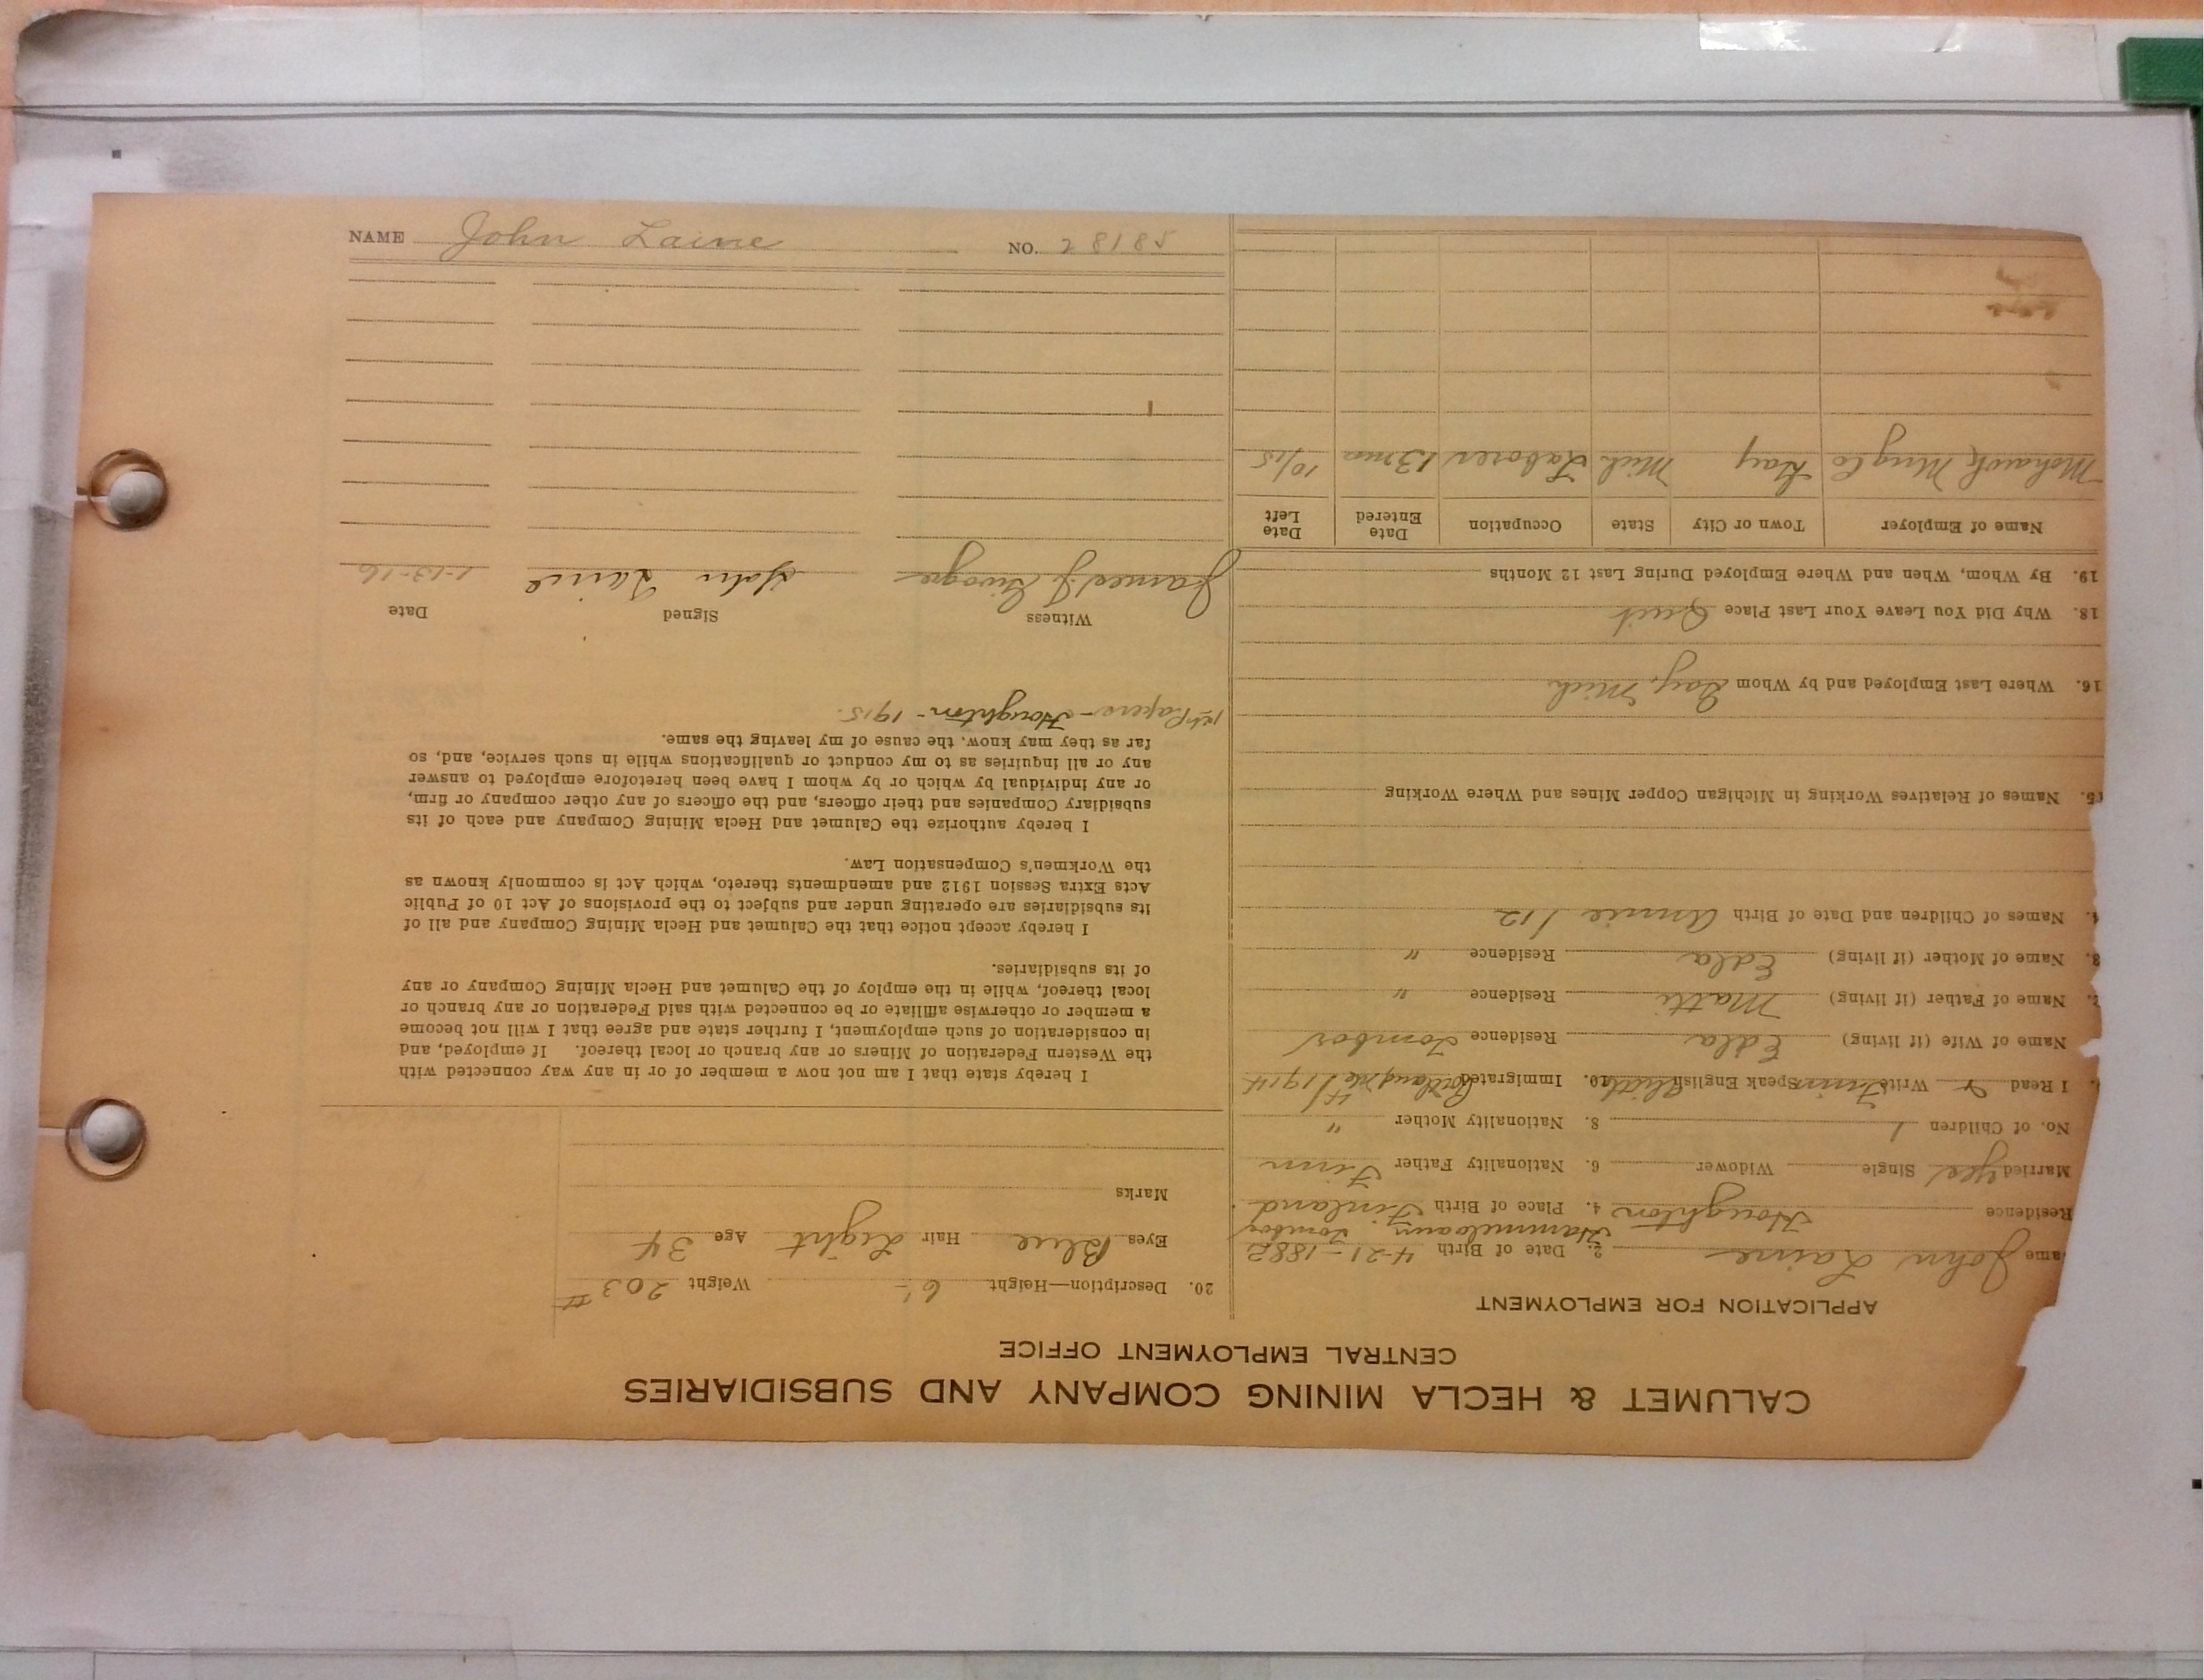 CALUMET & HECLA MINING COMPANY AND SUBSIDIARIES
CENTRAL EMPLOYMENT OFFICE
APPLICATION FOR EMPLOYMENT
ame John Laine 2. Date of Birth 4-21-1882
Residence Houghton 4. Place of Birth Finland
Married yes Single Widower 6. Nationality Father Finn
No. of Children 1 8. Nationality Mother "
I Read Write Finn Speak English 10. Immigrated 1914
Name of Wife (if living) Edla Residence
2. Name of Father (if living) Matti Residence "
3. Name of Mother (if living) Edla Residence "
4. Names of Children and Date of Birth Annie 1/12
5. Names of Relatives Working in Michigan Copper Mines and Where Working
16. Where Last Employed and by Whom Gay, Mich
18. Why Did You Leave Your Last Place Quit
19. By Whom, When and Where Employed During Last 12 Months
Name of Employer Town or City State Occupation Date Entered Date Left
Mohawk Mng Co Gay Mich Laborer 13 mo 10/15
20. Description—Height 6'- Weight 203 #
Eyes Blue Hair Light Age 34
Marks
I hereby state that I am not now a member of or in any way connected with
the Western Federation of Miners or any branch or local thereof. If employed, and
in consideration of such employment, I further state and agree that I will not become
a member or otherwise affiliate or be connected with said Federation or any branch or
local thereof, while in the employ of the Calumet and Hecla Mining Company or any
of its subsidiaries.
I hereby accept notice that the Calumet and Hecla Mining Company and all of
its subsidiaries are operating under and subject to the provisions of Act 10 of Public
Acts Extra Session 1912 and amendments thereto, which Act is commonly known as
the Workmen's Compensation Law.
I hereby authorize the Calumet and Hecla Mining Company and each of its
subsidiary Companies and their officers, and the officers of any other company or firm,
or any individual by which or by whom I have been heretofore employed to answer
any or all inquiries as to my conduct or qualifications while in such service, and, so
far as they may know, the cause of my leaving the same.
1st Papers - Houghton - 1915.
Witness Signed Date
James J. John Laine 1-13-16
NAME John Laine NO. 28185